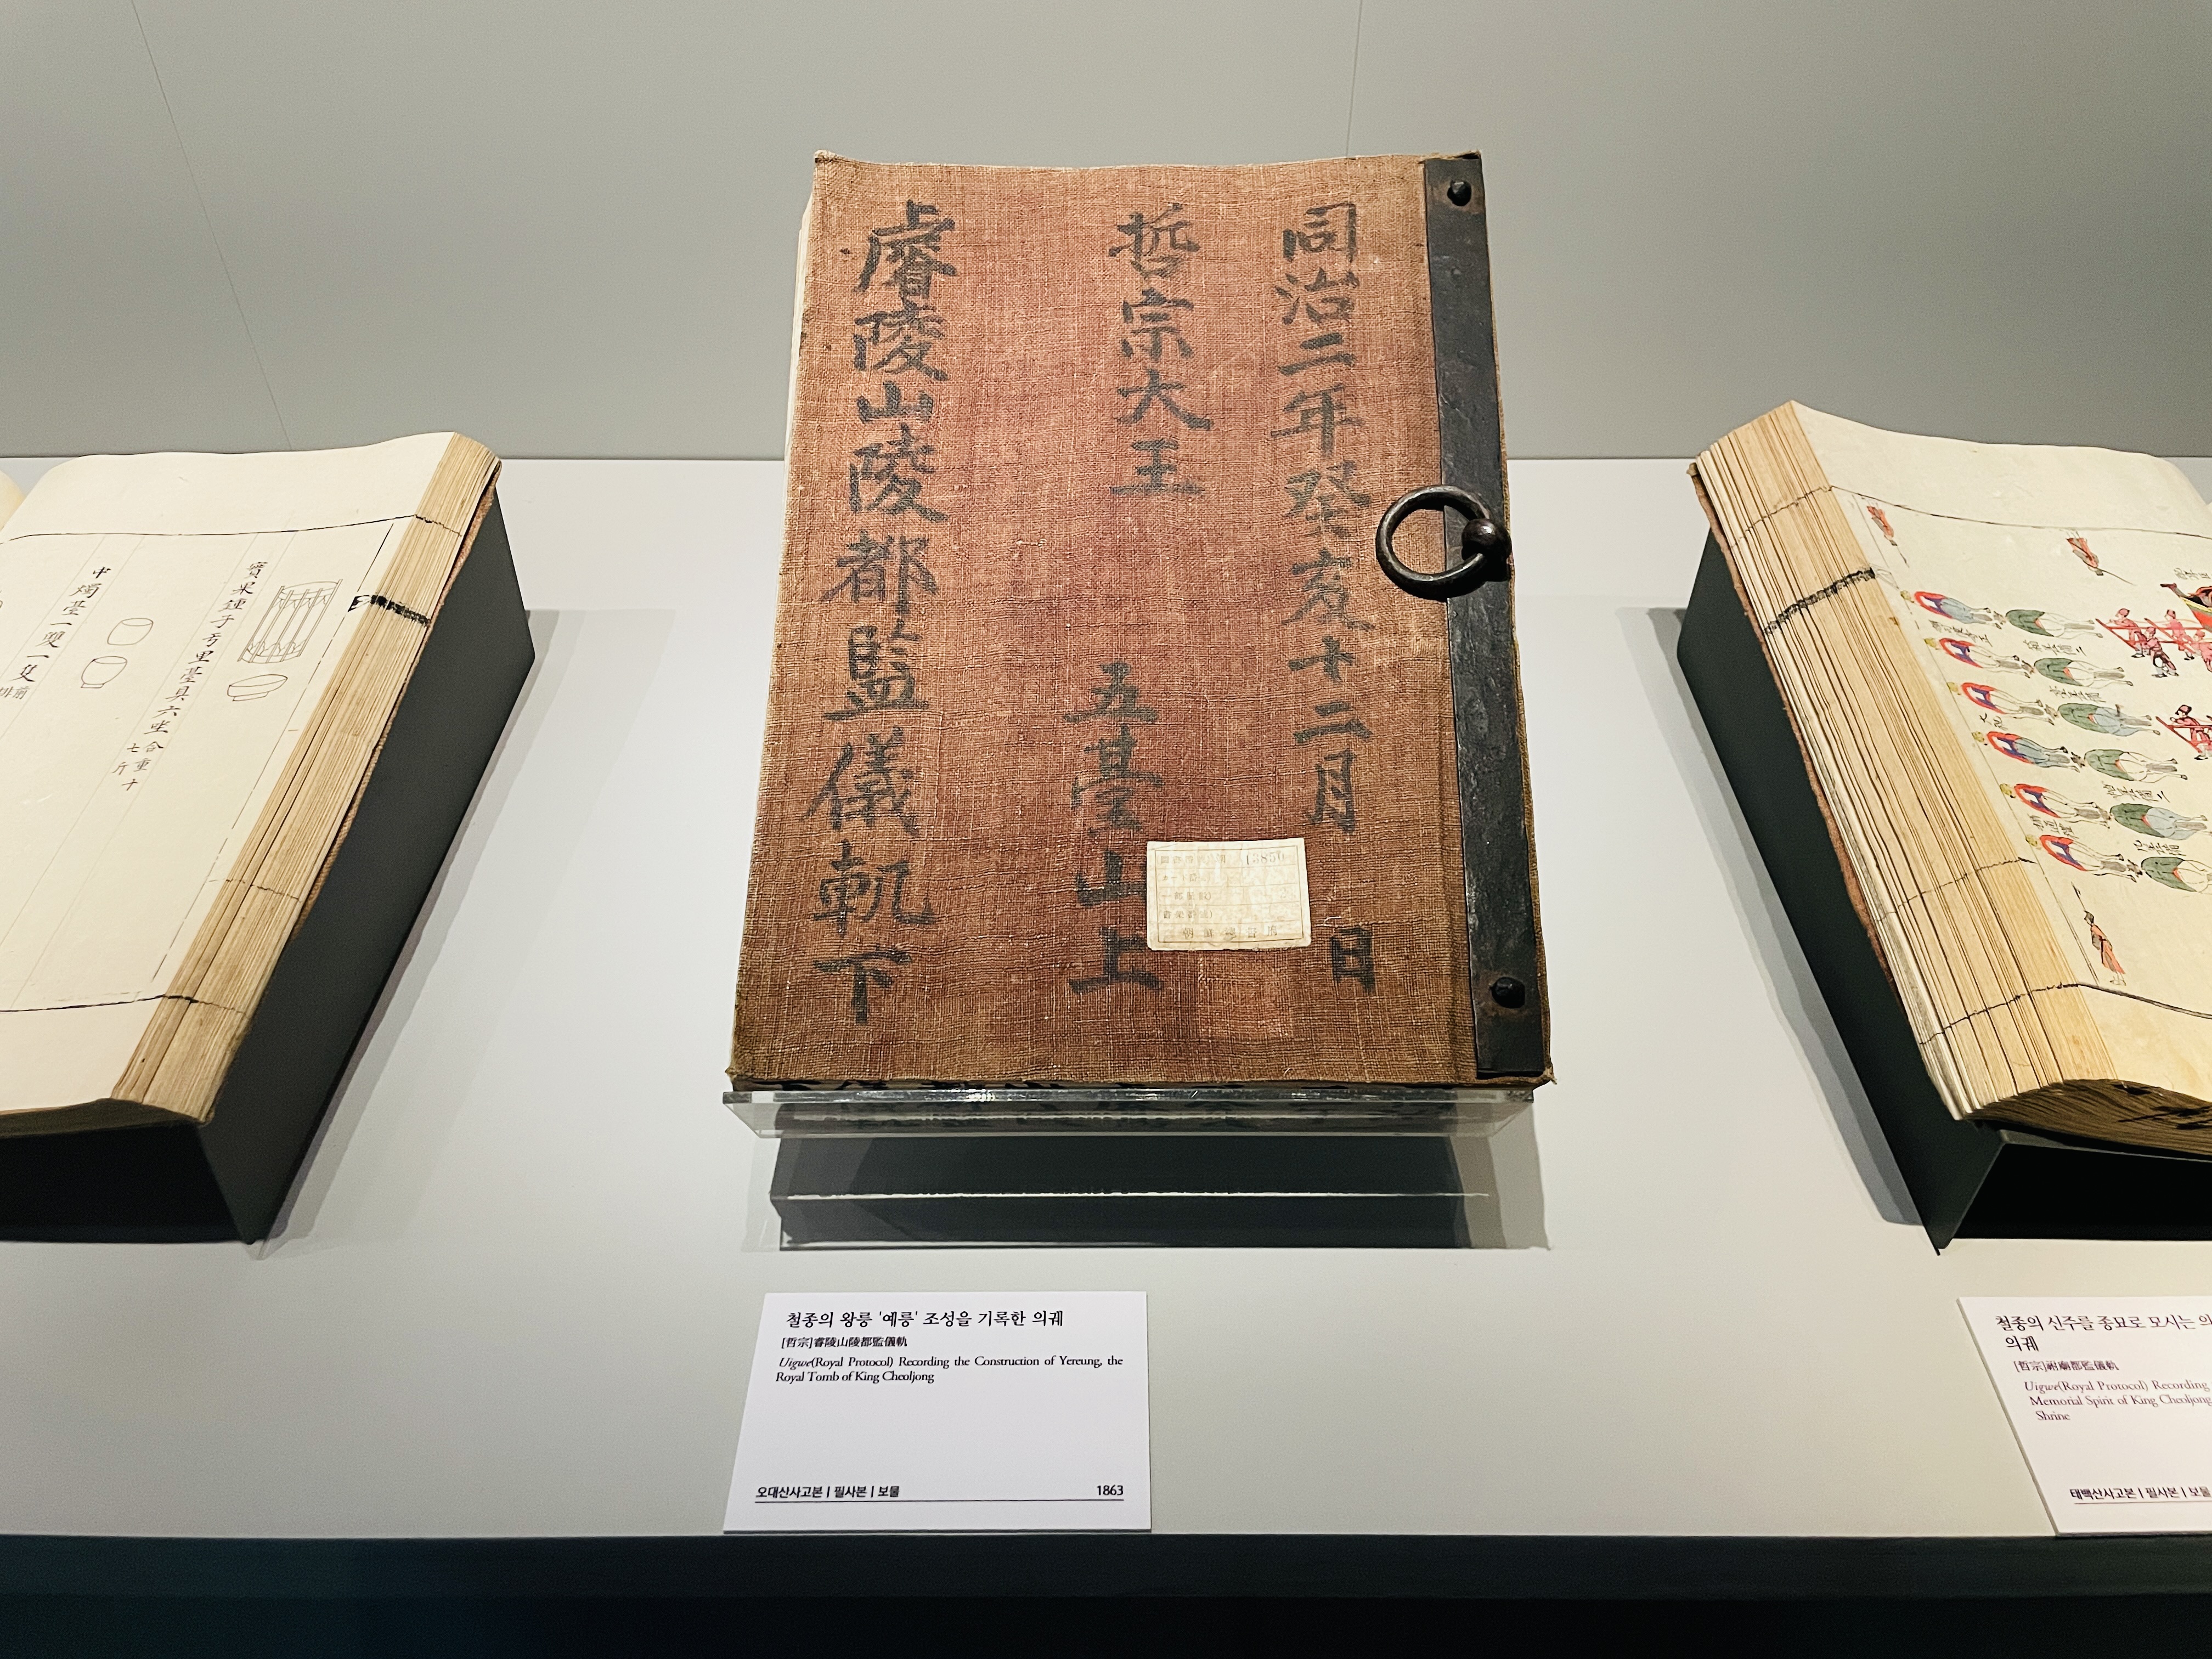 同治二年癸亥十二月 日
哲宗大王 五臺山上
睿陵山陵都監儀軌下
13850
實果鍾子亐里臺具六坐 合重十
七斤
中燭臺一雙一隻
철종의 왕릉 '예릉' 조성을 기록한 의궤
[哲宗]睿陵山陵都監儀軌
Uigwe(Royal Protocol) Recording the Construction of Yereung, the
Royal Tomb of King Cheoljong
오대산사고본 | 필사본 | 보물 1863
철종의 신주를 종묘로 모시는 의
의궤
[哲宗]祔廟都監儀軌
Uigwe(Royal Protocol) Recording
Memorial Spirit of King Cheoljong
Shrine
태백산사고본 | 필사본 | 보물